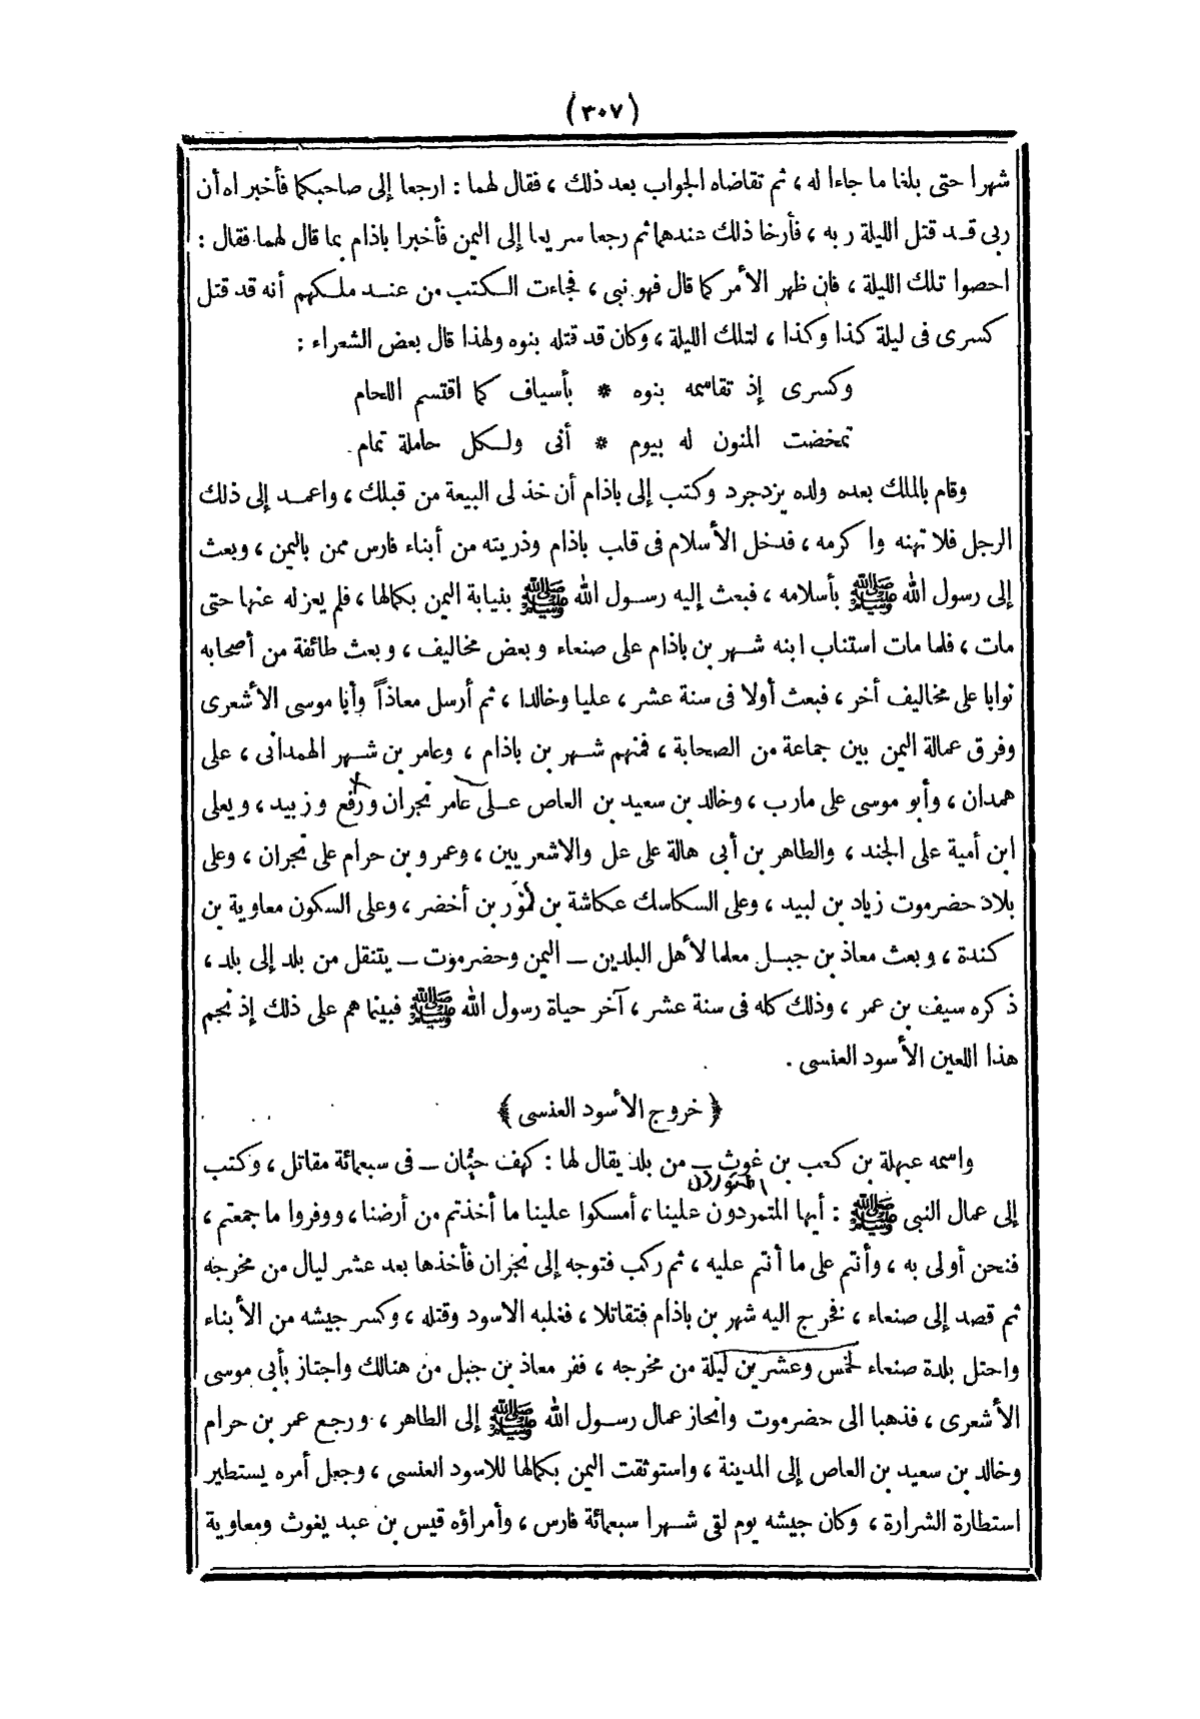 (٣٠٧)
شهرا حتى بلغا ما جاءا له ، ثم تقاضاه الجواب بعد ذلك ، فقال لهما : ارجعا إلى صاحبكما فأخبراه أن
ربى قد قتل الليلة ربه ، فأرخا ذلك عندهما ثم رجعا سريعا إلى اليمن فأخبرا باذام بما قال لهما فقال :
احصوا تلك الليلة ، فان ظهر الأمر كما قال فهو نبى ، فجاءت الكتب من عند ملكهم أنه قد قتل
كسرى فى ليلة كذا وكذا ، لتلك الليلة ، وكان قد قتله بنوه ولهذا قال بعض الشعراء :
وكسرى إذ تقاسمه بنوه * بأسياف كما اقتسم اللحام
تمخضت المنون له بيوم * أنى ولكل حاملة تمام
وقام بالملك بعده ولده يزدجرد وكتب إلى باذام أن خذ لى البيعة من قبلك ، واعمد إلى ذلك
الرجل فلا تهنه واكرمه ، فدخل الأسلام فى قلب باذام وذريته من أبناء فارس ممن باليمن ، وبعث
إلى رسول الله ﷺ بأسلامه ، فبعث إليه رسول الله ﷺ بنيابة اليمن بكمالها ، فلم يعزله عنها حتى
مات ، فلما مات استناب ابنه شهر بن باذام على صنعاء وبعض مخاليف ، وبعث طائفة من أصحابه
نوابا على مخاليف أخر ، فبعث أولا فى سنة عشر ، عليا وخالدا ، ثم أرسل معاذاً وأبا موسى الأشعرى
وفرق عمالة اليمن بين جماعة من الصحابة ، فمنهم شهر بن باذام ، وعامر بن شهر الهمدانى ، على
همدان ، وأبو موسى على مارب ، وخالد بن سعيد بن العاص على عامر نجران ورفع وزبيد ، ويعلى
ابن أمية على الجند ، والطاهر بن أبى هالة على عل والاشعريين ، وعمرو بن حرام على نجران ، وعلى
بلاد حضرموت زياد بن لبيد ، وعلى السكاسك عكاشة بن ثور بن أخضر ، وعلى السكون معاوية بن
كندة ، وبعث معاذ بن جبل معلما لأهل البلدين – اليمن وحضرموت – يتنقل من بلد إلى بلد ،
ذكره سيف بن عمر ، وذلك كله فى سنة عشر ، آخر حياة رسول الله ﷺ فبينما هم على ذلك إذ نجم
هذا اللعين الأسود العنسى .
﴿ خروج الأسود العنسى ﴾
واسمه عبهلة بن كعب بن غوث – من بلد يقال لها : كهف حنان – فى سبعمائة مقاتل ، وكتب
المتوردون
إلى عمال النبى ﷺ : أيها المتمردون علينا ، أمسكوا علينا ما أخذتم من أرضنا ، ووفروا ما جمعتم ،
فنحن أولى به ، وأنتم على ما أنتم عليه ، ثم ركب فتوجه إلى نجران فأخذها بعد عشر ليال من مخرجه
ثم قصد إلى صنعاء ، فخرج اليه شهر بن باذام فتقاتلا ، فغلبه الاسود وقتله ، وكسر جيشه من الأبناء
واحتل بلدة صنعاء لخمس وعشرين ليلة من مخرجه ، ففر معاذ بن جبل من هنالك واجتاز بأبى موسى
الأشعرى ، فذهبا الى حضرموت وانحاز عمال رسول الله ﷺ إلى الطاهر ، ورجع عمر بن حرام
وخالد بن سعيد بن العاص إلى المدينة ، واستوثقت اليمن بكمالها للاسود العنسى ، وجعل أمره يستطير
استطارة الشرارة ، وكان جيشه يوم لقى شهرا سبعمائة فارس ، وأمراؤه قيس بن عبد يغوث ومعاوية